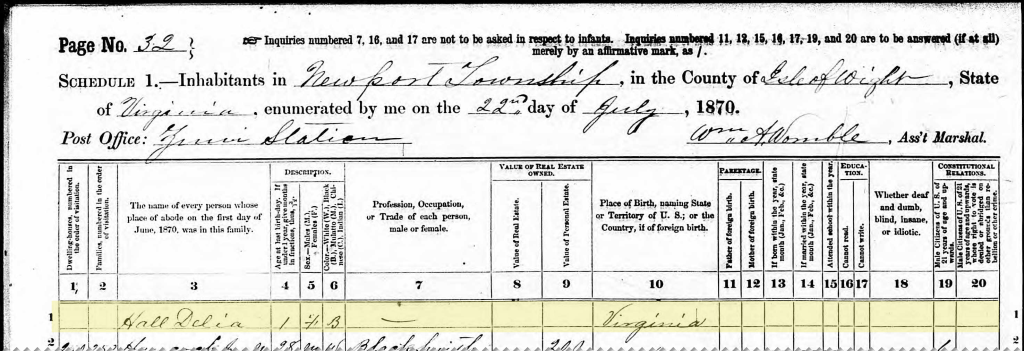 Page No. 32 } ☞ Inquiries numbered 7, 16, and 17 are not to be asked in respect to infants. Inquiries numbered 11, 12, 15, 16, 17, 19, and 20 are to be answered (if at all)
merely by an affirmative mark, as /.
SCHEDULE 1.—Inhabitants in Newport Township, in the County of Isle of Wight, State
of Virginia, enumerated by me on the 22nd day of July, 1870.
Post Office: Station
Wm A. Womble, Ass't Marshal.
Dwelling-houses, numbered in the order of visitation.
Families, numbered in the order of visitation.
The name of every person whose
place of abode on the first day of
June, 1870, was in this family.
DESCRIPTION.
Age at last birth-day. If under 1 year, give months in fractions, thus
Sex.—Males (M.), Females (F.)
Color.—White (W.), Black (B.), Mulatto (M.), Chinese (C.), Indian (I.)
Profession, Occupation,
or Trade of each person,
male or female.
VALUE OF REAL ESTATE
OWNED.
Value of Real Estate.
Value of Personal Estate.
Place of Birth, naming State
or Territory of U. S.; or the
Country, if of foreign birth.
PARENTAGE.
Father of foreign birth.
Mother of foreign birth.
If born within the year, state month (Jan., Feb., &c.)
If married within the year, state month (Jan., Feb., &c.)
Attended school within the year.
EDUCA-
TION.
Cannot read.
Cannot write.
Whether deaf
and dumb,
blind, insane,
or idiotic.
CONSTITUTIONAL
RELATIONS.
Male Citizens of U. S. of 21 years of age and upwards.
Male Citizens of U. S. of 21 years of age and upwards, whose right to vote is denied or abridged on other grounds than rebellion or other crime.
1 2 3 4 5 6 7 8 9 10 11 12 13 14 15 16 17 18 19 20
1 Hall Delia 1 F B — Virginia 1
2 28 Blacksmith 200 2